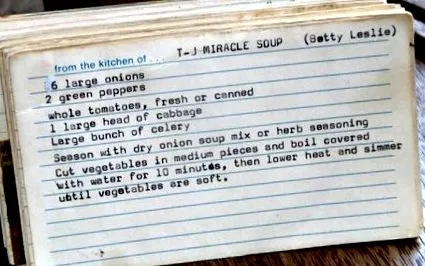 T-J MIRACLE SOUP (Betty Leslie)
from the kitchen of . . .
6 large onions
2 green peppers
whole tomatoes, fresh or canned
1 large head of cabbage
Large bunch of celery
Season with dry onion soup mix or herb seasoning
Cut vegetables in medium pieces and boil covered
with water for 10 minutes, then lower heat and simmer
until vegetables are soft.